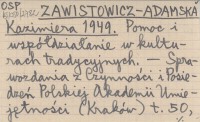 OSP ZAWISTOWICZ-ADAMSKA
Kazimiera 1949. Pomoc i
współdziałanie w kultu-
rach tradycyjnych. — Spra-
wozdania z Czynności i Posie-
dzeń Polskiej Akademii Umie-
jętności (Kraków) t. 50,